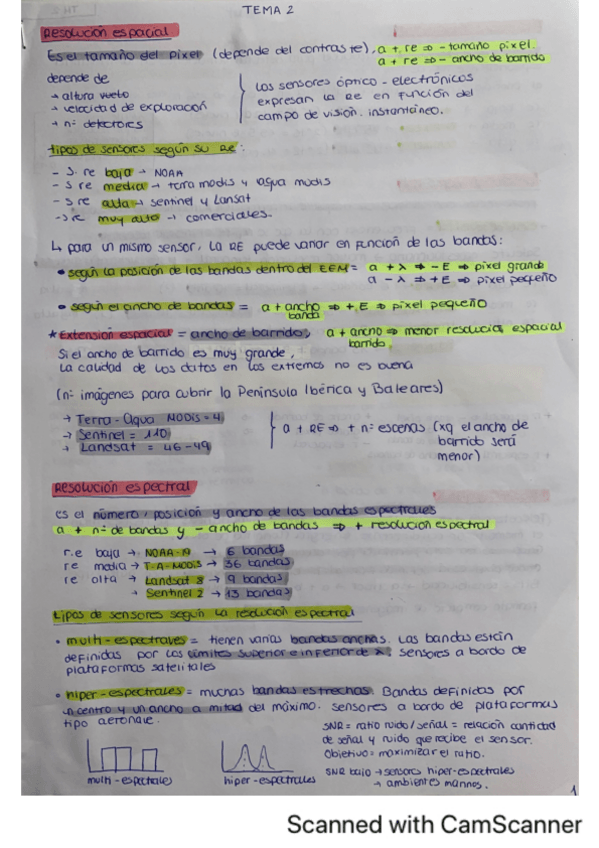 TEMA 2
Resolución espacial
Es el tamaño del píxel (depende del contraste), a + re ⇒ - tamaño píxel.
a + re ⇒ - ancho de barrido
depende de
→ altura vuelo
→ velocidad de exploración
→ nº detectores
Los sensores óptico - electrónicos
expresan la RE en función del
campo de visión instantáneo.
tipos de sensores según su RE:
- S. re baja → NOAA
- S re media → terra modis y agua modis
- S re alta → sentinel y Lansat
- S re muy alta → comerciales.
↳ para un mismo sensor, la RE puede variar en función de las bandas:
• según la posición de las bandas dentro del EEM = a + λ ⇒ - E ⇒ píxel grande
a - λ ⇒ + E ⇒ píxel pequeño
• según el ancho de bandas = a + ancho banda ⇒ + E ⇒ píxel pequeño
* Extensión espacial = ancho de barrido; a + ancho barrido ⇒ menor resolución espacial
Si el ancho de barrido es muy grande,
la calidad de los datos en los extremos no es buena
(nº imágenes para cubrir la Península Ibérica y Baleares)
→ Terra - Aqua MODIS = 4
→ Sentinel = 110
→ Landsat = 46-49
a + RE ⇒ + nº escenas (xq el ancho de
barrido será
menor)
Resolución espectral
es el número, posición y ancho de las bandas espectrales
a + nº de bandas y - ancho de bandas ⇒ + resolución espectral
r.e baja → NOAA-19 → 6 bandas
re media → T-A-MODIS → 36 bandas
re alta → Landsat 8 → 9 bandas
→ Sentinel 2 → 13 bandas
tipos de sensores según la resolución espectral
• multi-espectrales = tienen varias bandas anchas. Las bandas están
definidas por los límites superior e inferior de λ. sensores a bordo de
plataformas satelitales
• hiper-espectrales = muchas bandas estrechas. Bandas definidas por
un centro y un ancho a mitad del máximo. sensores a bordo de plataformas
tipo aeronave.
SNR = ratio ruido/señal = relación cantidad
de señal y ruido que recibe el sensor.
Objetivo = maximizar el ratio.
SNR bajo → sensores hiper-espectrales
→ ambientes marinos.
multi-espectrales
hiper-espectrales
1
Scanned with CamScanner